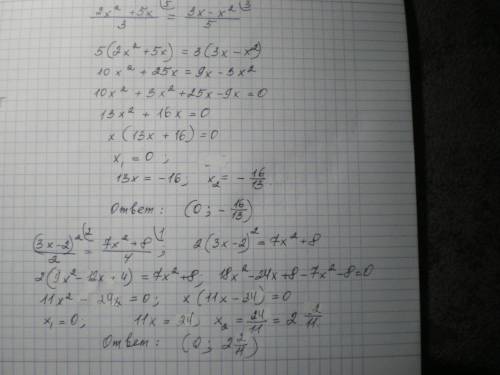 (2x² + 5x)/3 ⁽⁵ = (3x - x²)/5 ⁽³
5(2x² + 5x) = 3(3x - x²)
10x² + 25x = 9x - 3x²
10x² + 3x² + 25x - 9x = 0
13x² + 16x = 0
x(13x + 16) = 0
x₁ = 0 ;
13x = -16; x₂ = - 16/13
Ответ: (0; - 16/13)
(3x - 2)²/2 ⁽² = (7x² + 8)/4 ⁽¹ ; 2(3x - 2)² = 7x² + 8
2(9x² - 12x + 4) = 7x² + 8; 18x² - 24x + 8 - 7x² - 8 = 0
11x² - 24x = 0; x(11x - 24) = 0
x₁ = 0; 11x = 24; x₂ = 24/11 = 2 2/11.
Ответ: (0; 2 2/11)